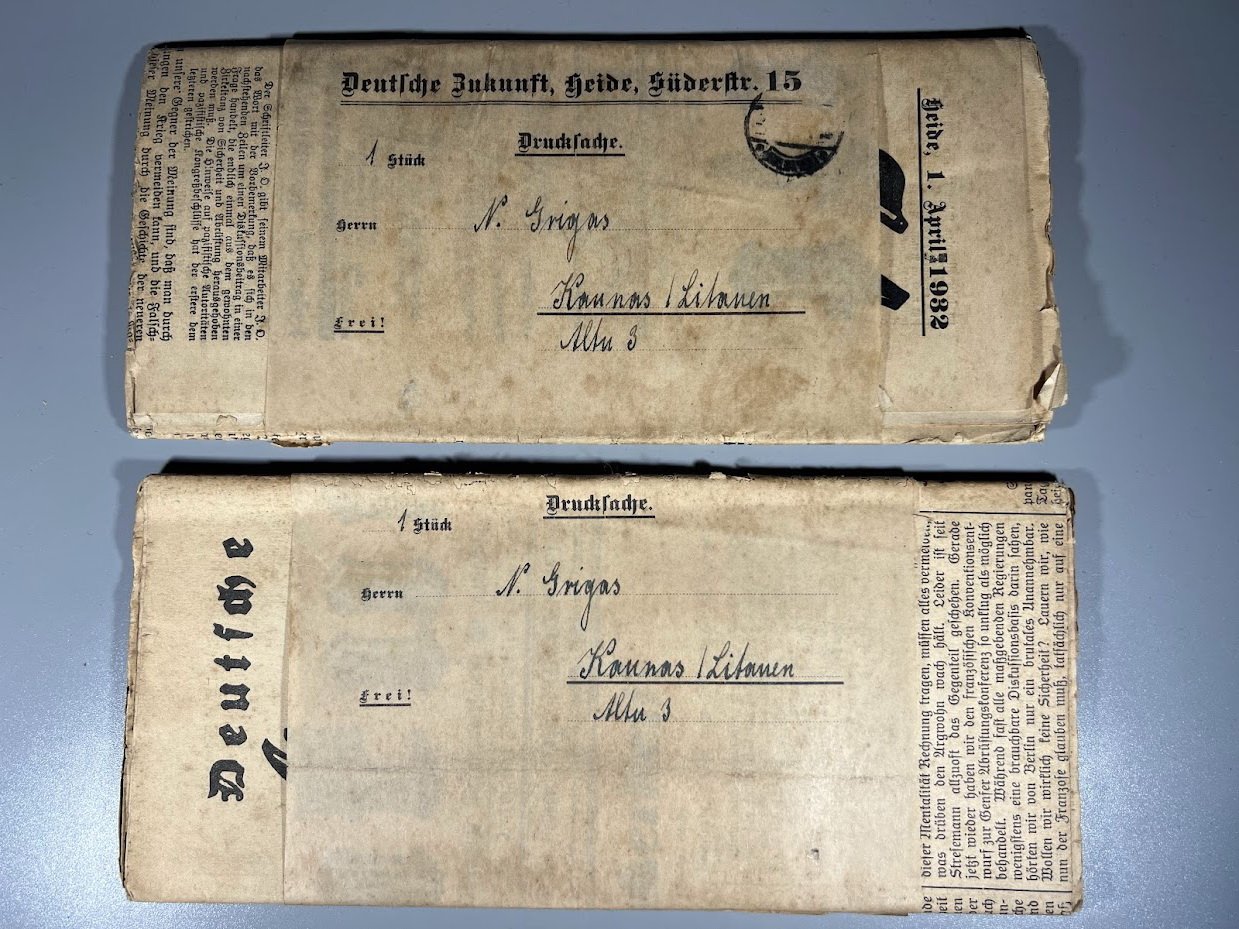 Der Schriftleiter J. O. gibt seinem Mitarbeiter J. O.
das Wort mit der Vorbemerkung, daß es sich in den
nachstehenden Zeilen um einen Diskussionsbeitrag in einer
Frage handelt, die endlich einmal aus dem gewohnten
Zirkeltanz von Sicherheit und Abrüstung herausgehoben
werden muß. Die Hinweise auf pazifistische Autoritäten
und pazifistische Kongreßbeschlüsse hat der erstere dem
letzteren gestrichen.
unsere Gegner der Meinung sind, daß man durch
ngen den Krieg vermeiden kann, und die Falsch-
dieser Meinung durch die Geschichte der neueren
Deutsche Zukunft, Heide, Süderstr. 15
Drucksache.
1 Stück
Herrn N. Grigas
Kaunas / Litauen
Frei!
Altu 3
Heide, 1. April 1932
Deutsche
Drucksache.
1 Stück
Herrn N. Grigas
Kaunas / Litauen
Frei!
Altu 3
dieser Mentalität Rechnung tragen, müssen alles vermeiden,
was drüben den Argwohn wach hält. Leider ist seit
Stresemann allzuoft das Gegenteil geschehen. Gerade
jetzt wieder haben wir den französischen Konventionsent-
wurf zur Genfer Abrüstungskonferenz so unklug als möglich
behandelt. Während fast alle maßgebenden Regierungen
wenigstens eine brauchbare Diskussionsbasis darin sahen,
hörten wir von Berlin nur ein brutales Unannehmbar.
Wollen wir wirklich keine Sicherheit? Lauern wir, wie
nun der Franzose glauben muß, tatsächlich nur auf eine